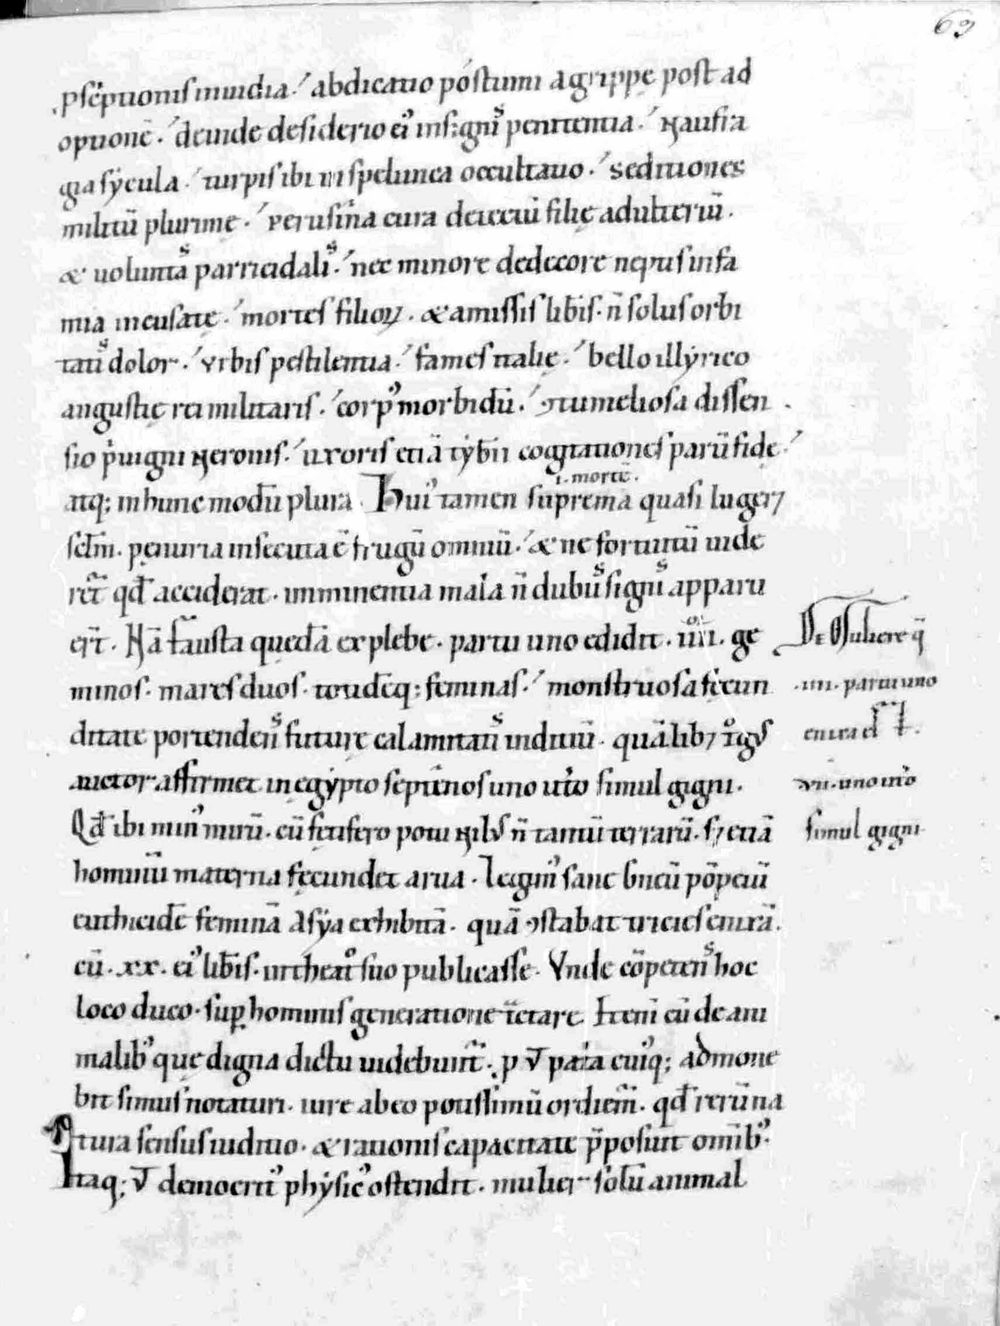 69
pſcͥptioniſ inuidia. abdicatio póſtumi agrippę poſt ad
optionē. deinde deſiderio ei᾽ inſigniˢ penitentia. Naufra
gia ſẏcula. turpiſ ibi in ſpelunca occultatio. Seditiones
militū plurimę. peruſina cura detectū filię adulteriū.
& uoluntaˢ parricidaliˢ. nec minore dedecore neptiſ infa
mia incuſatę. morteſ filioꝝ. & amiſſiſ lib̄iſ. n̄ ſoluſ orbi
tatiˢ dolor. Vrbiſ peſtilentia. fameſ italię. bello illẏrico
anguſtię rei militariſ. corp᾽ morbidū. ꝯtumelioſa diſſen
ſio pͥuigni Neroniſ. uxoriſ etiā tẏb̄ii cogitationeſ parū fidę.
atq; in hunc modū plura. Hui᾽ tamen ſuprema quaſi lugeꝛ
.i. mortē.
ſcl̄m. penuria inſecuta ē frugū omniū. & ne fortuitū uide
ret̄ qđ acciderat. imminentia mala n̄ dubiiˢ ſigniˢ apparu
er̄t. Nā fauſta quedā ex plebe. partu uno edidit. iiii. ge
minoſ. mareſ duoſ. totidēq; feminaſ. monſtruoſa fecun
ditate portendenˢ futurę calamitatiˢ indiciū. quālibꝫ
auctor affirmet in egẏpto ſeptenoſ uno ut̄o ſimul gigni.
Qđ ibi min᾽ mirū. cū fetifero potu Nil᾽ n̄ tantū terrarū. ſꝫ etiā
hominū materna fecundet arua. Legim᾽ ſane Gneū pōpeiū
euthicidē feminā Aſẏa exhibitā. quā ꝯſtabat tricieſ enixā.
cū .xx. ei᾽ lib̄iſ. in theat̊ ſuo publicaſſe. Vnde cōpetenˢ hoc
loco duco. ſuꝑ hominiſ generatione t̄ctare. Etenī cū de ani
malib᾽ que digna dictu uidebunt̄.
bit ſimuſ notaturi. iure ab eo potiſſimū ordiem̄. qđ rerū na
tura ſenſuſ iudicio. & rationiſ capacitate p̄poſuit omib᾽.
Itaq; ṽ democrit᾽ phẏſic᾽ oſtendit. mulier ſolū animal
De Muliere q̄
.iiii. partu uno
enixa
vii. uno ut̊o
ſimul gigni